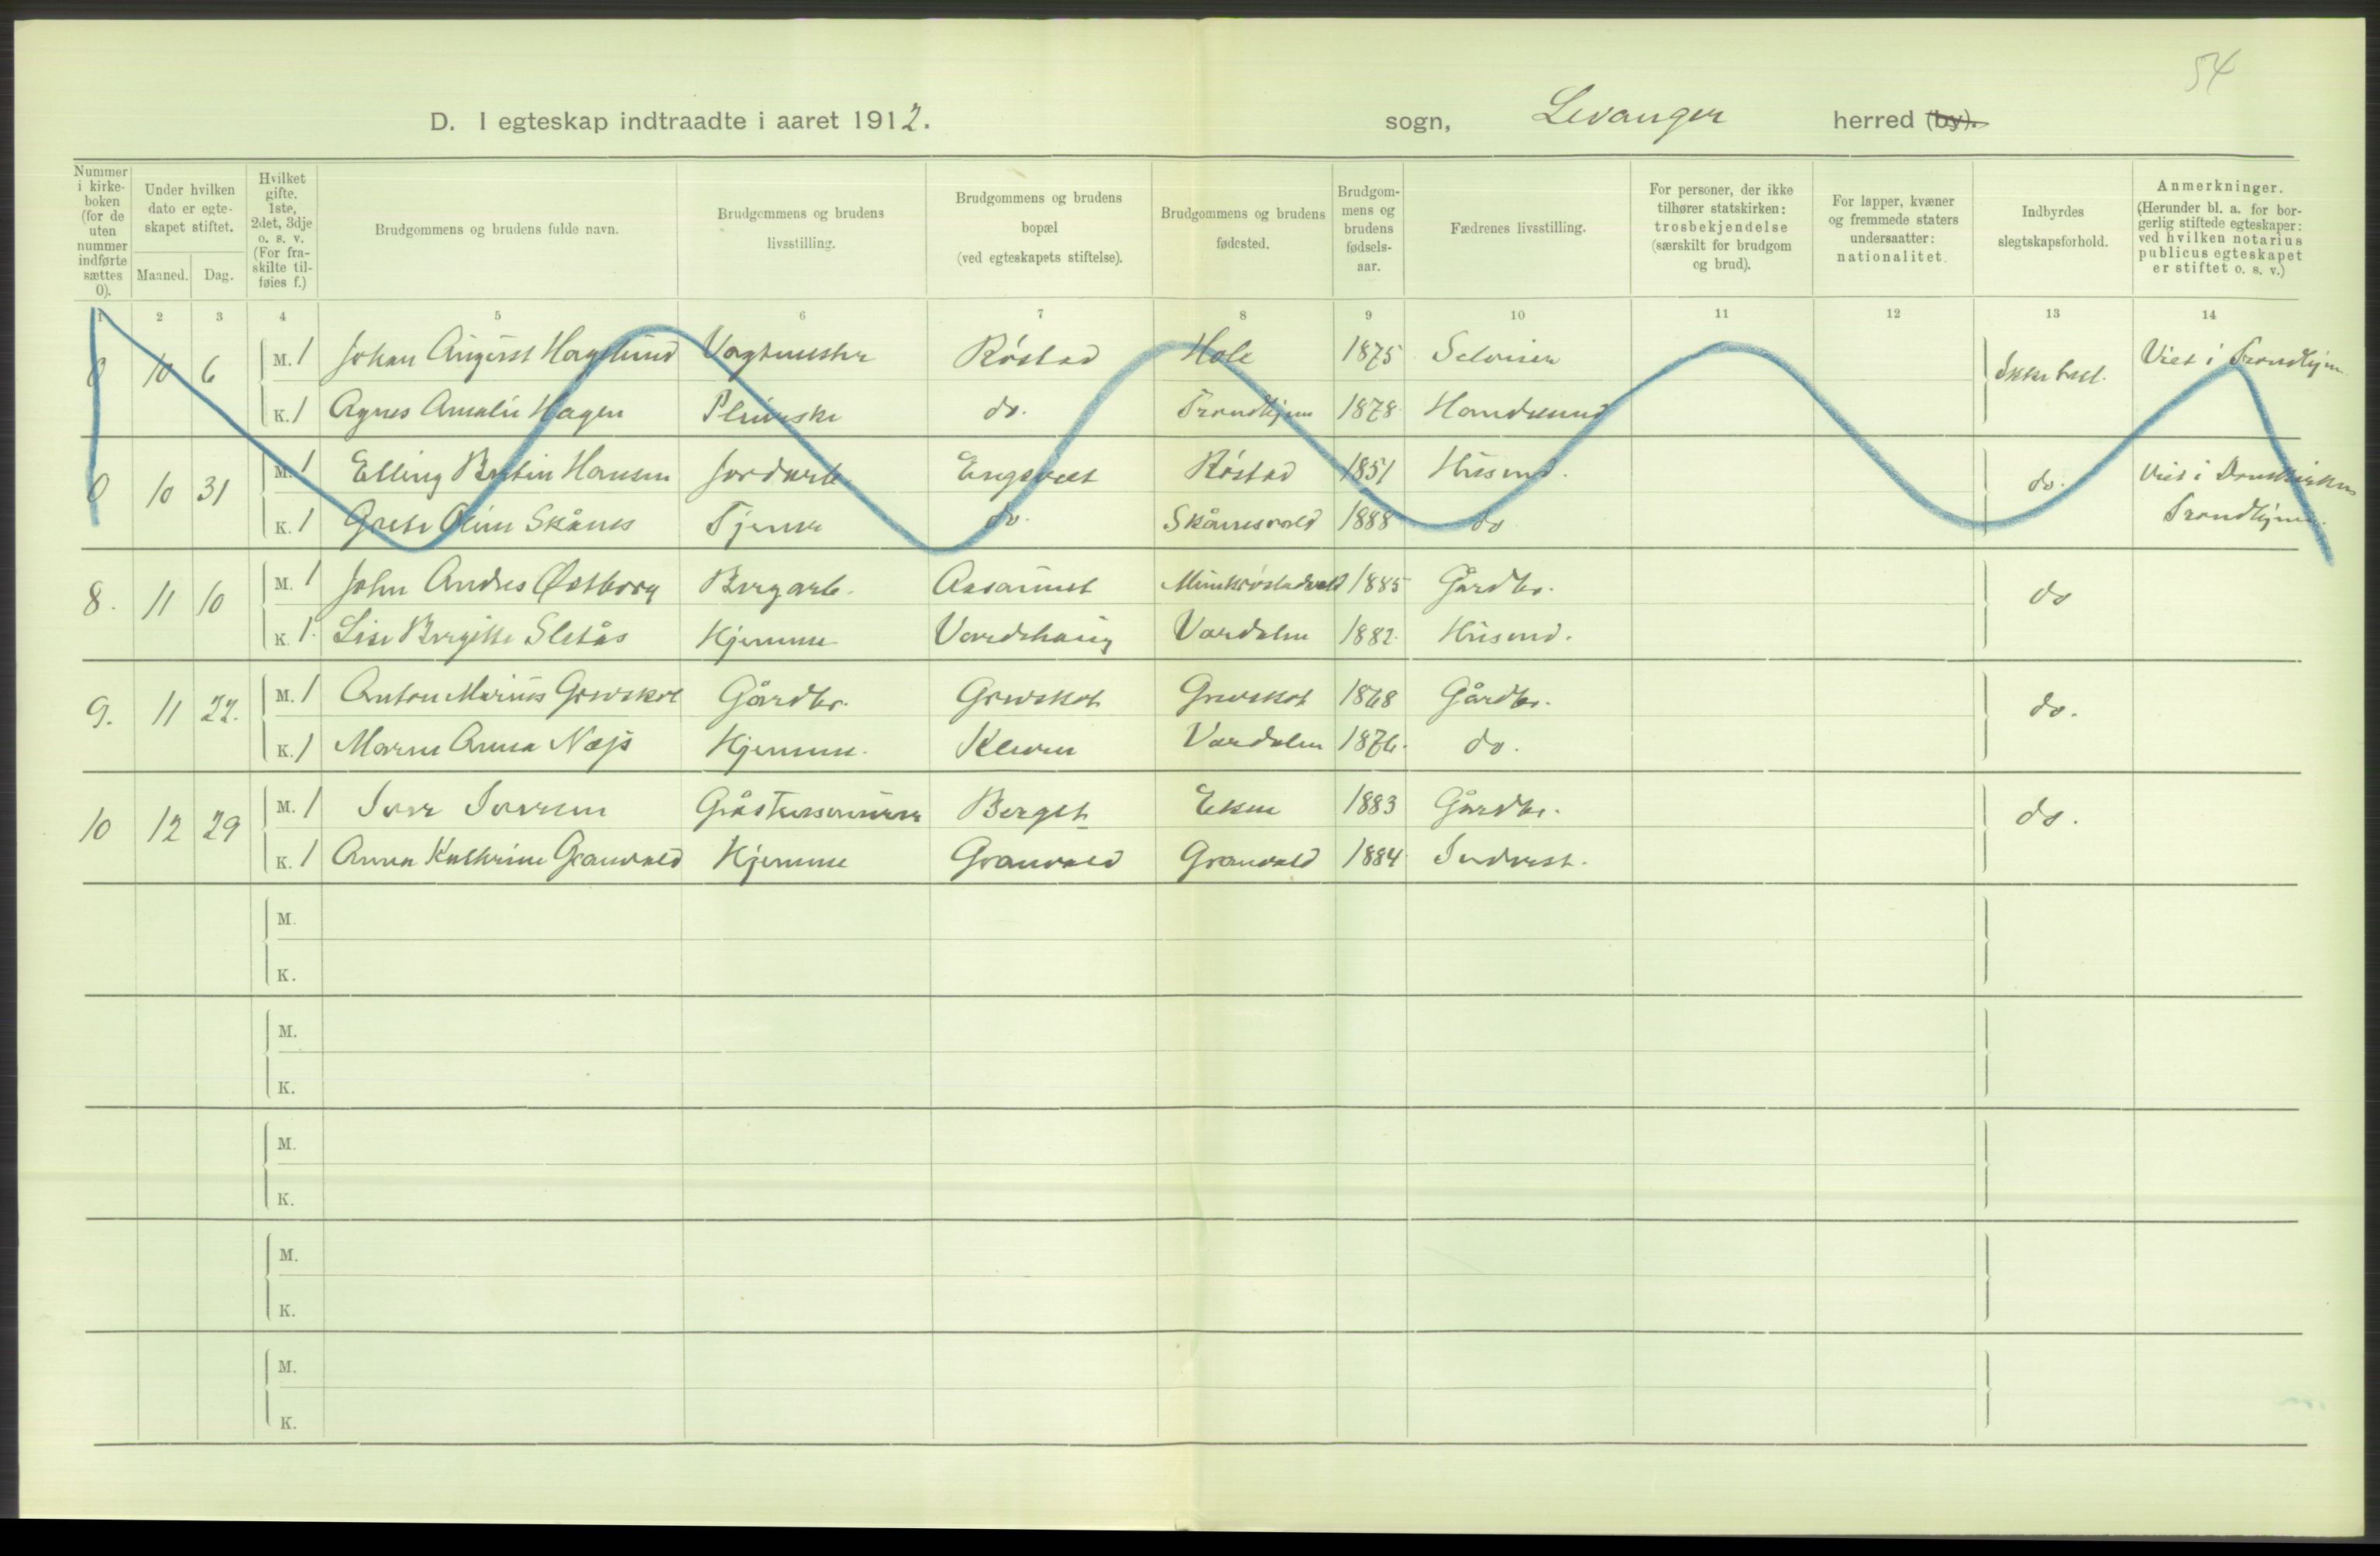 54
D. I egteskap indtraadte i aaret 1912. sogn, Levanger herred (by).
Nummer i kirke-boken (for de uten nummer indførte sættes 0).
Under hvilken dato er egte-skapet stiftet.
Maaned. Dag.
Hvilket gifte. 1ste, 2det, 3dje o. s. v. (For fra-skilte til-føies f.)
Brudgommens og brudens fulde navn.
Brudgommens og brudens livsstilling.
Brudgommens og brudens bopæl (ved egteskapets stiftelse).
Brudgommens og brudens fødested.
Brudgom-mens og brudens fødsels-aar.
Fædrenes livsstilling.
For personer, der ikke tilhører statskirken: trosbekjendelse (særskilt for brudgom og brud).
For lapper, kvæner og fremmede staters undersaatter: nationalitet.
Indbyrdes slegtskapsforhold.
Anmerkninger. (Herunder bl. a. for bor-gerlig stiftede egteskaper: ved hvilken notarius publicus egteskapet er stiftet o. s. v.)
1 2 3 4 5 6 7 8 9 10 11 12 13 14
0 10 6 M. 1 Johan August Hagelund Vagtmester Røstad Hole 1875 Ikke besl. Viet i Trondhjem
K. 1 Agnes Amalie Hagen Pleierske do. Trondhjem 1878 Handelsmand
0 10 31 M. 1 Elling Bertin Hansen Jordarb. Røstad 1851 Husmd. do. Viet i Domkirken
K. 1 Grete Oline Skånes Tjener do. Skånesvald 1888 do Trondhjem.
8. 11 10 M. 1 John Andres Østborg Bergarb. Aasaunet 1885 Gårdbr. do
K. 1. Lise Bergitte Sletås Hjemme Værdalen 1882. Husmd.
9. 11 22. M. 1 Anton Marius Grevskot Gårdbr. Grevskot Grevskot 1868 Gårdbr. do.
K. 1 Maren Anna Næss Hjemme. Kleven Værdalen 1876. do.
10 12 29 M. 1 Iver Iversen Berget Ekne 1883 Gårdbr. do.
K. 1 Anna Kathrine Granvald Hjemme Granvald Granvald 1884 Inderst.
M.
K.
M.
K.
M.
K.
M.
K.
M.
K.